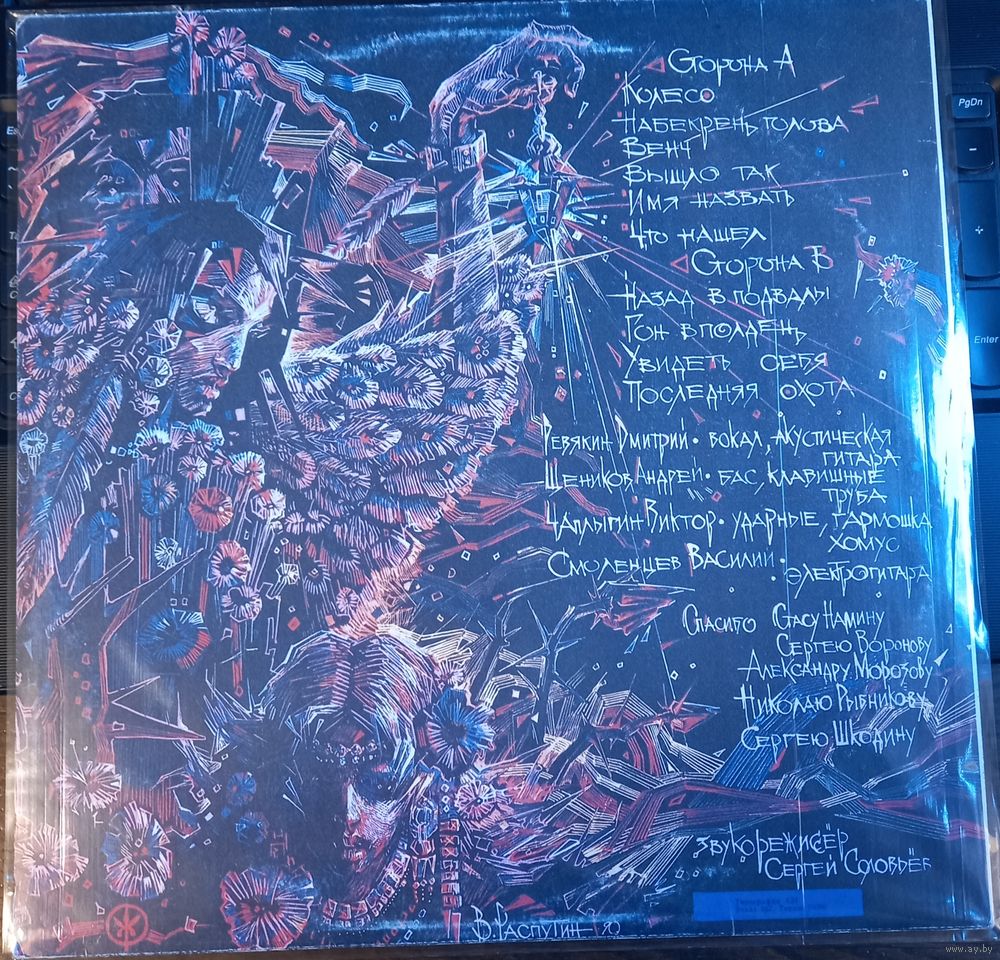 Сторона А
Колесо
Набекрень голова
Венч
Вышло так
Имя назвать
Что нашёл
Сторона Б
Назад в подвалы
Гон в полдень
Увидеть себя
Последняя охота
Ревякин Дмитрий • вокал, акустическая
гитара
Щеников Андрей • бас, клавишные
труба
Чаплыгин Виктор • ударные, гармошка
хомус
Смоленцев Василий •
электрогитара
Спасибо Стасу Намину
Сергею Воронову
Александру Морозову
Николаю Рыбникову
Сергею Шкодину
звукорежиссёр
Сергей Соловьёв
В. Распутин
PgDn
Enter
www.ay.by